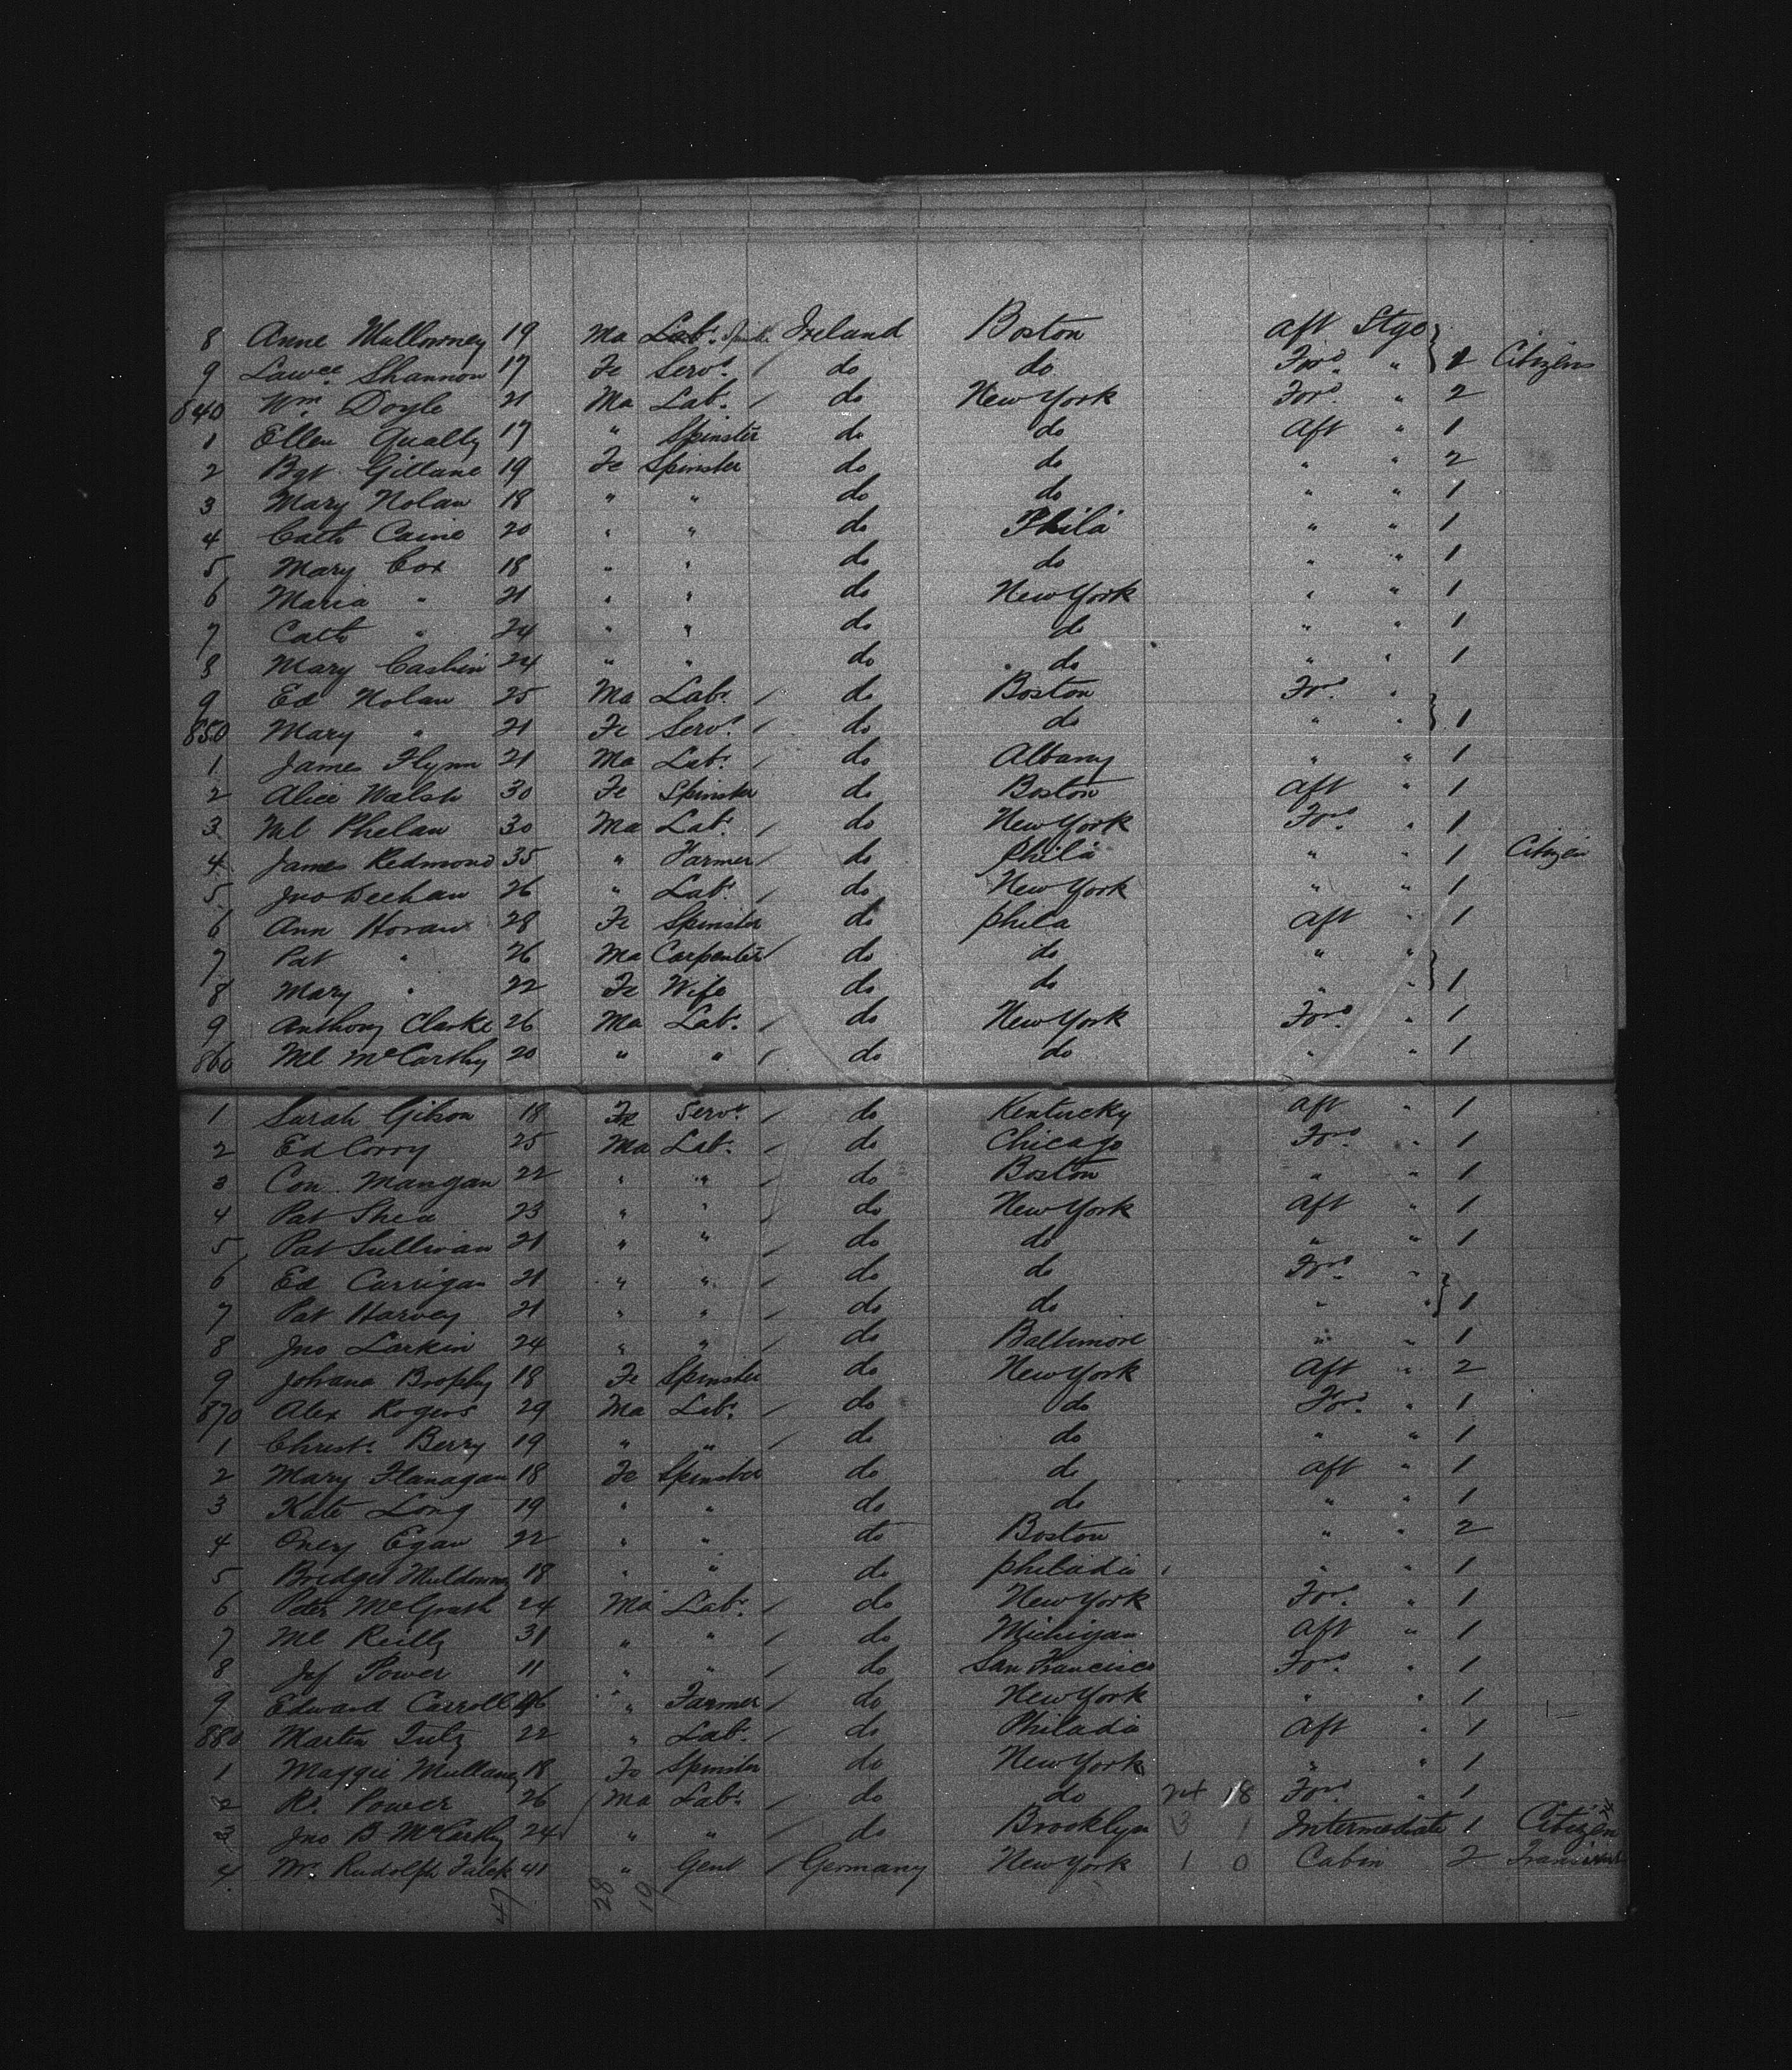 8 Anne Mullowney 19 Ma Lab. Ireland Boston Aft Stge
9 Lawce Shannon 17 Fe Servt / do do Ford " 1 Citizens
840 Wm Doyle 21 Ma Lab. / do New York Ford " 2
1 Ellen Qualty 17 " Spinster do do Aft " 1
2 Bgt Gillane 19 Fe Spinster do do " " 2
3 Mary Nolan 18 " " do do " " 1
4 Cath Caine 20 " " do Phila " " 1
5 Mary Cox 18 " " do do " " 1
6 Maria " 21 " " do New York " " 1
7 Cath " 24 " " do do " " 1
8 Mary Cashin 24 " " do do " " 1
9 Ed Nolan 25 Ma Labr / do Boston Ford "
850 Mary " 21 Fe Servt / do do " " } 1
1 James Flynn 21 Ma Labr / do Albany " " 1
2 Alice Walsh 30 Fe Spinster do Boston Aft " 1
3 Ml Phelan 30 Ma Labr / do New York Ford " 1
4 James Redmond 35 " Farmer / do Phila " " 1 Citizen
5 Jno Deehan 26 " Labr / do New York " " 1
6 Ann Horan 28 Fe Spinster do Phila Aft " 1
7 Pat " 26 Ma Carpenter / do do " "
8 Mary " 22 Fe Wife do do " " } 1
9 Anthony Clarke 26 Ma Labr / do New York Ford " 1
860 Ml McCarthy 20 " " / do do " " 1
1 Sarah Gibson 18 Fe Servt / do Kentucky Aft " 1
2 Ed Corry 25 Ma Labr / do Chicago Ford " 1
3 Con Mangan 22 " " / do Boston " " 1
4 Pat Shea 23 " " / do New York Aft " 1
5 Pat Sullivan 21 " " / do do " " 1
6 Ed Carrigan 21 " " / do do Ford "
7 Pat Harvey 21 " " / do do " " } 1
8 Jno Larkin 24 " " / do Baltimore " " 1
9 Johana Brophy 18 Fe Spinster do New York Aft " 2
870 Alex Rogers 29 Ma Labr / do do Ford " 1
1 Christr Berry 19 " " / do do " " 1
2 Mary Flanagan 18 Fe Spinster do do Aft " 1
3 Kate Long 19 " " do do " " 1
4 Egan 22 " " do Boston " " 2
5 Bridget Muldowney 18 " " do Philadia " " 1
6 Peter McGrath 24 Ma Labr / do New York Ford " 1
7 Ml Reilly 31 " " / do Michigan Aft " 1
8 Power 11 " " / do San Francisco Ford " 1
9 Edward Carroll " Farmer / do New York " " 1
880 Martin 22 " Labr / do Philadia Aft " 1
1 Maggie Mullany 18 Fe Spinster do New York " " 1
2 Rd Power 26 Ma Labr / do do 24 18 Ford " 1
3 Jno B McCarthy 24 " " / do Brooklyn 3 1 Intermediate 1 Citizen
4 Mr Rudolph Falck 41 " Gent / Germany New York 1 0 Cabin 2
47 28 10